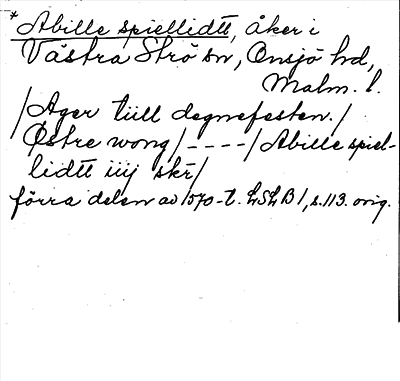 * Abille spiellidtt, åker i
Västra Strö sn, Onsjö hd,
Malm. l.
/Ager tiill degnefesten./
Østre wong/----/Abille spiel-
lidtt iiij skr/
förra delen av 1570-t. LSLB 1, s. 113. orig.